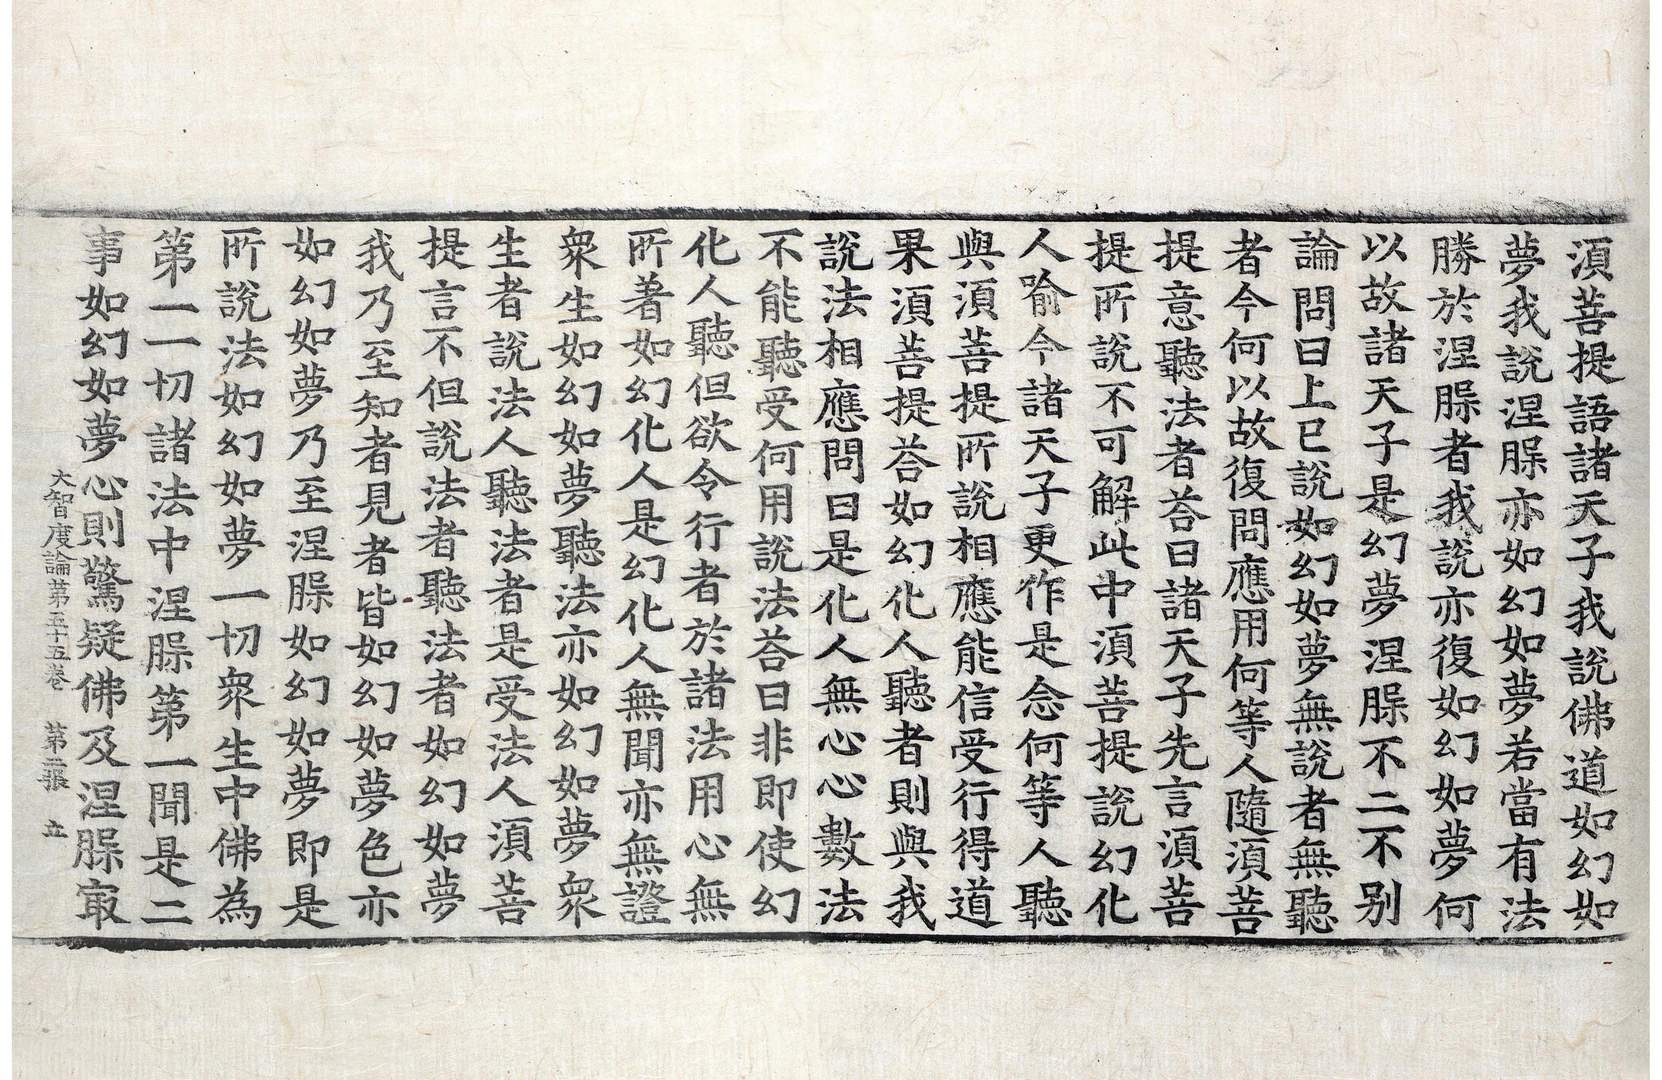 須菩提語諸天子我說佛道如幻如
夢我說涅槃亦如幻如夢若當有法
勝於涅槃者我說亦復如幻如夢何
以故諸天子是幻夢涅槃不二不別
論問曰上已說如幻如夢無說者無聽
者今何以故復問應用何等人隨須菩
提意聽法者荅曰諸天子先言須菩
提所說不可解此中須菩提說幻化
人喻今諸天子更作是念何等人聽
與須菩提所說相應能信受行得道
果須菩提荅如幻化人聽者則與我
說法相應問曰是化人無心心數法
不能聽受何用說法荅曰非即使幻
化人聽但欲令行者於諸法用心無
所著如幻化人是幻化人無聞亦無證
衆生如幻如夢聽法亦如幻如夢衆
生者說法人聽法者是受法人須菩
提言不但說法者聽法者如幻如夢
我乃至知者見者皆如幻如夢色亦
如幻如夢乃至涅槃如幻如夢即是
所說法如幻如夢一切衆生中佛為
第一一切諸法中涅槃第一聞是二
事如幻如夢心則驚疑佛及涅槃㝡
大智度論第五十五卷 第二張 立